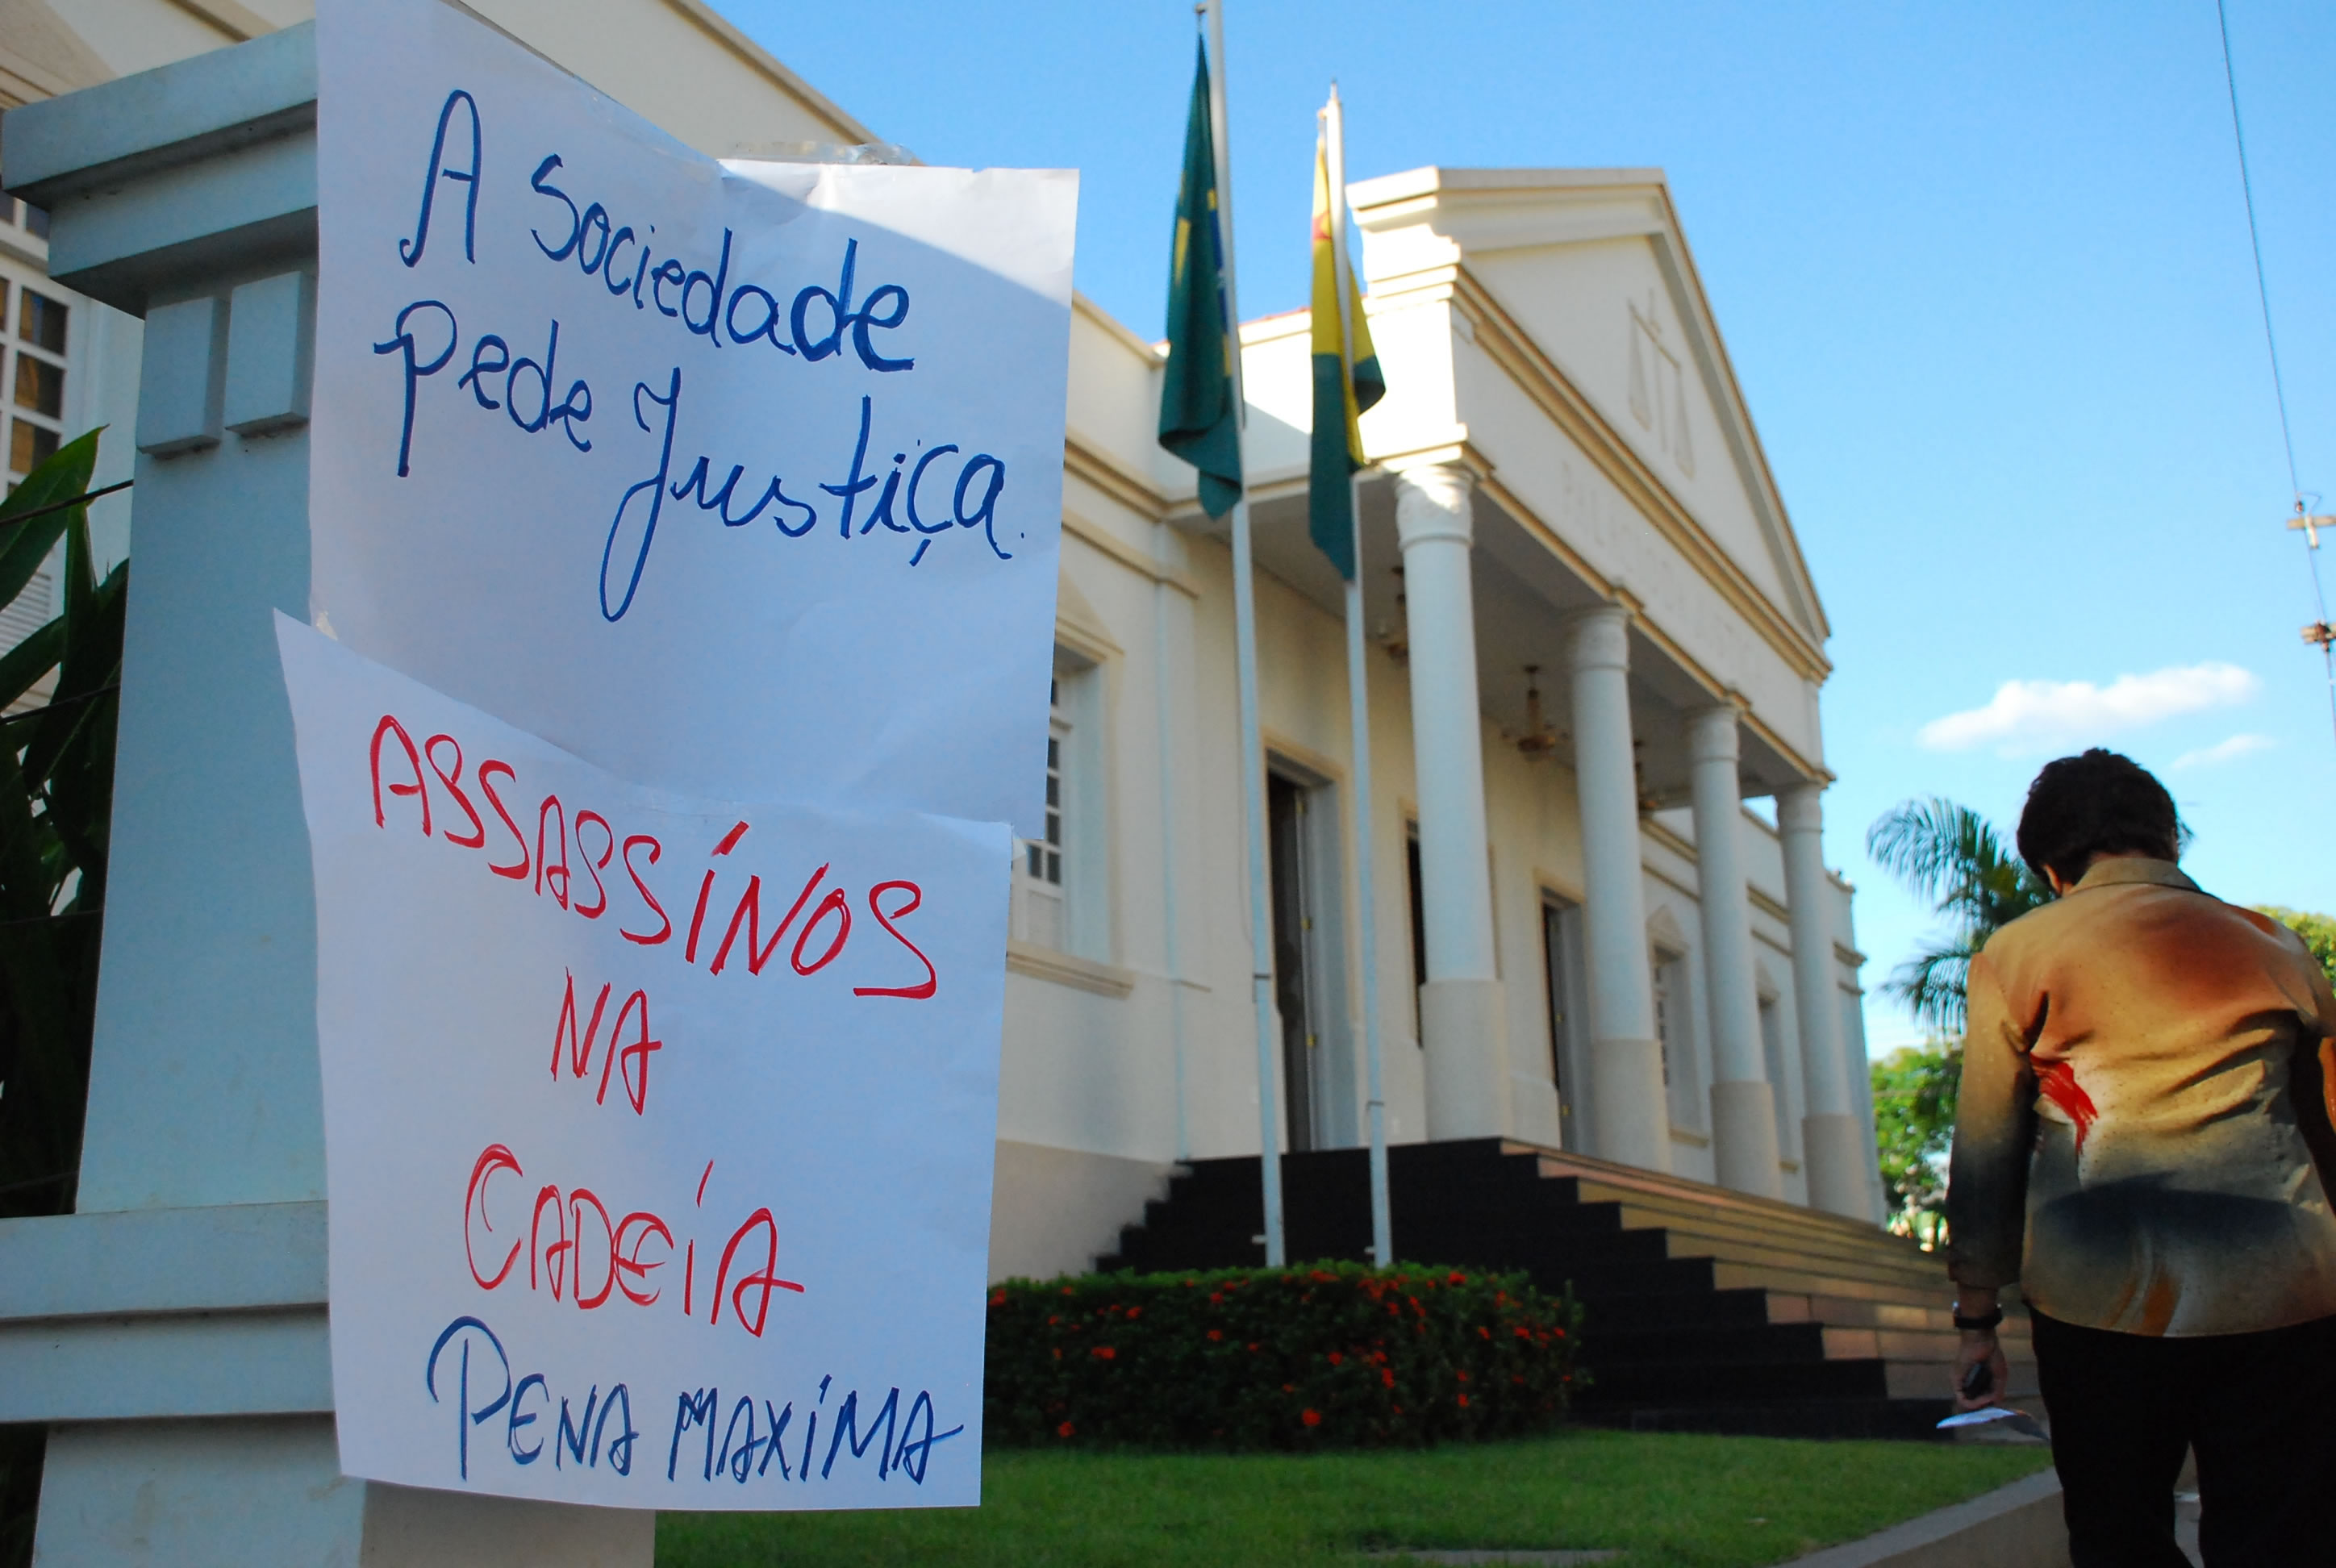 A Sociedade
Pede Justiça.
ASSASSINOS
NA
CADEIA
PENA MAXIMA